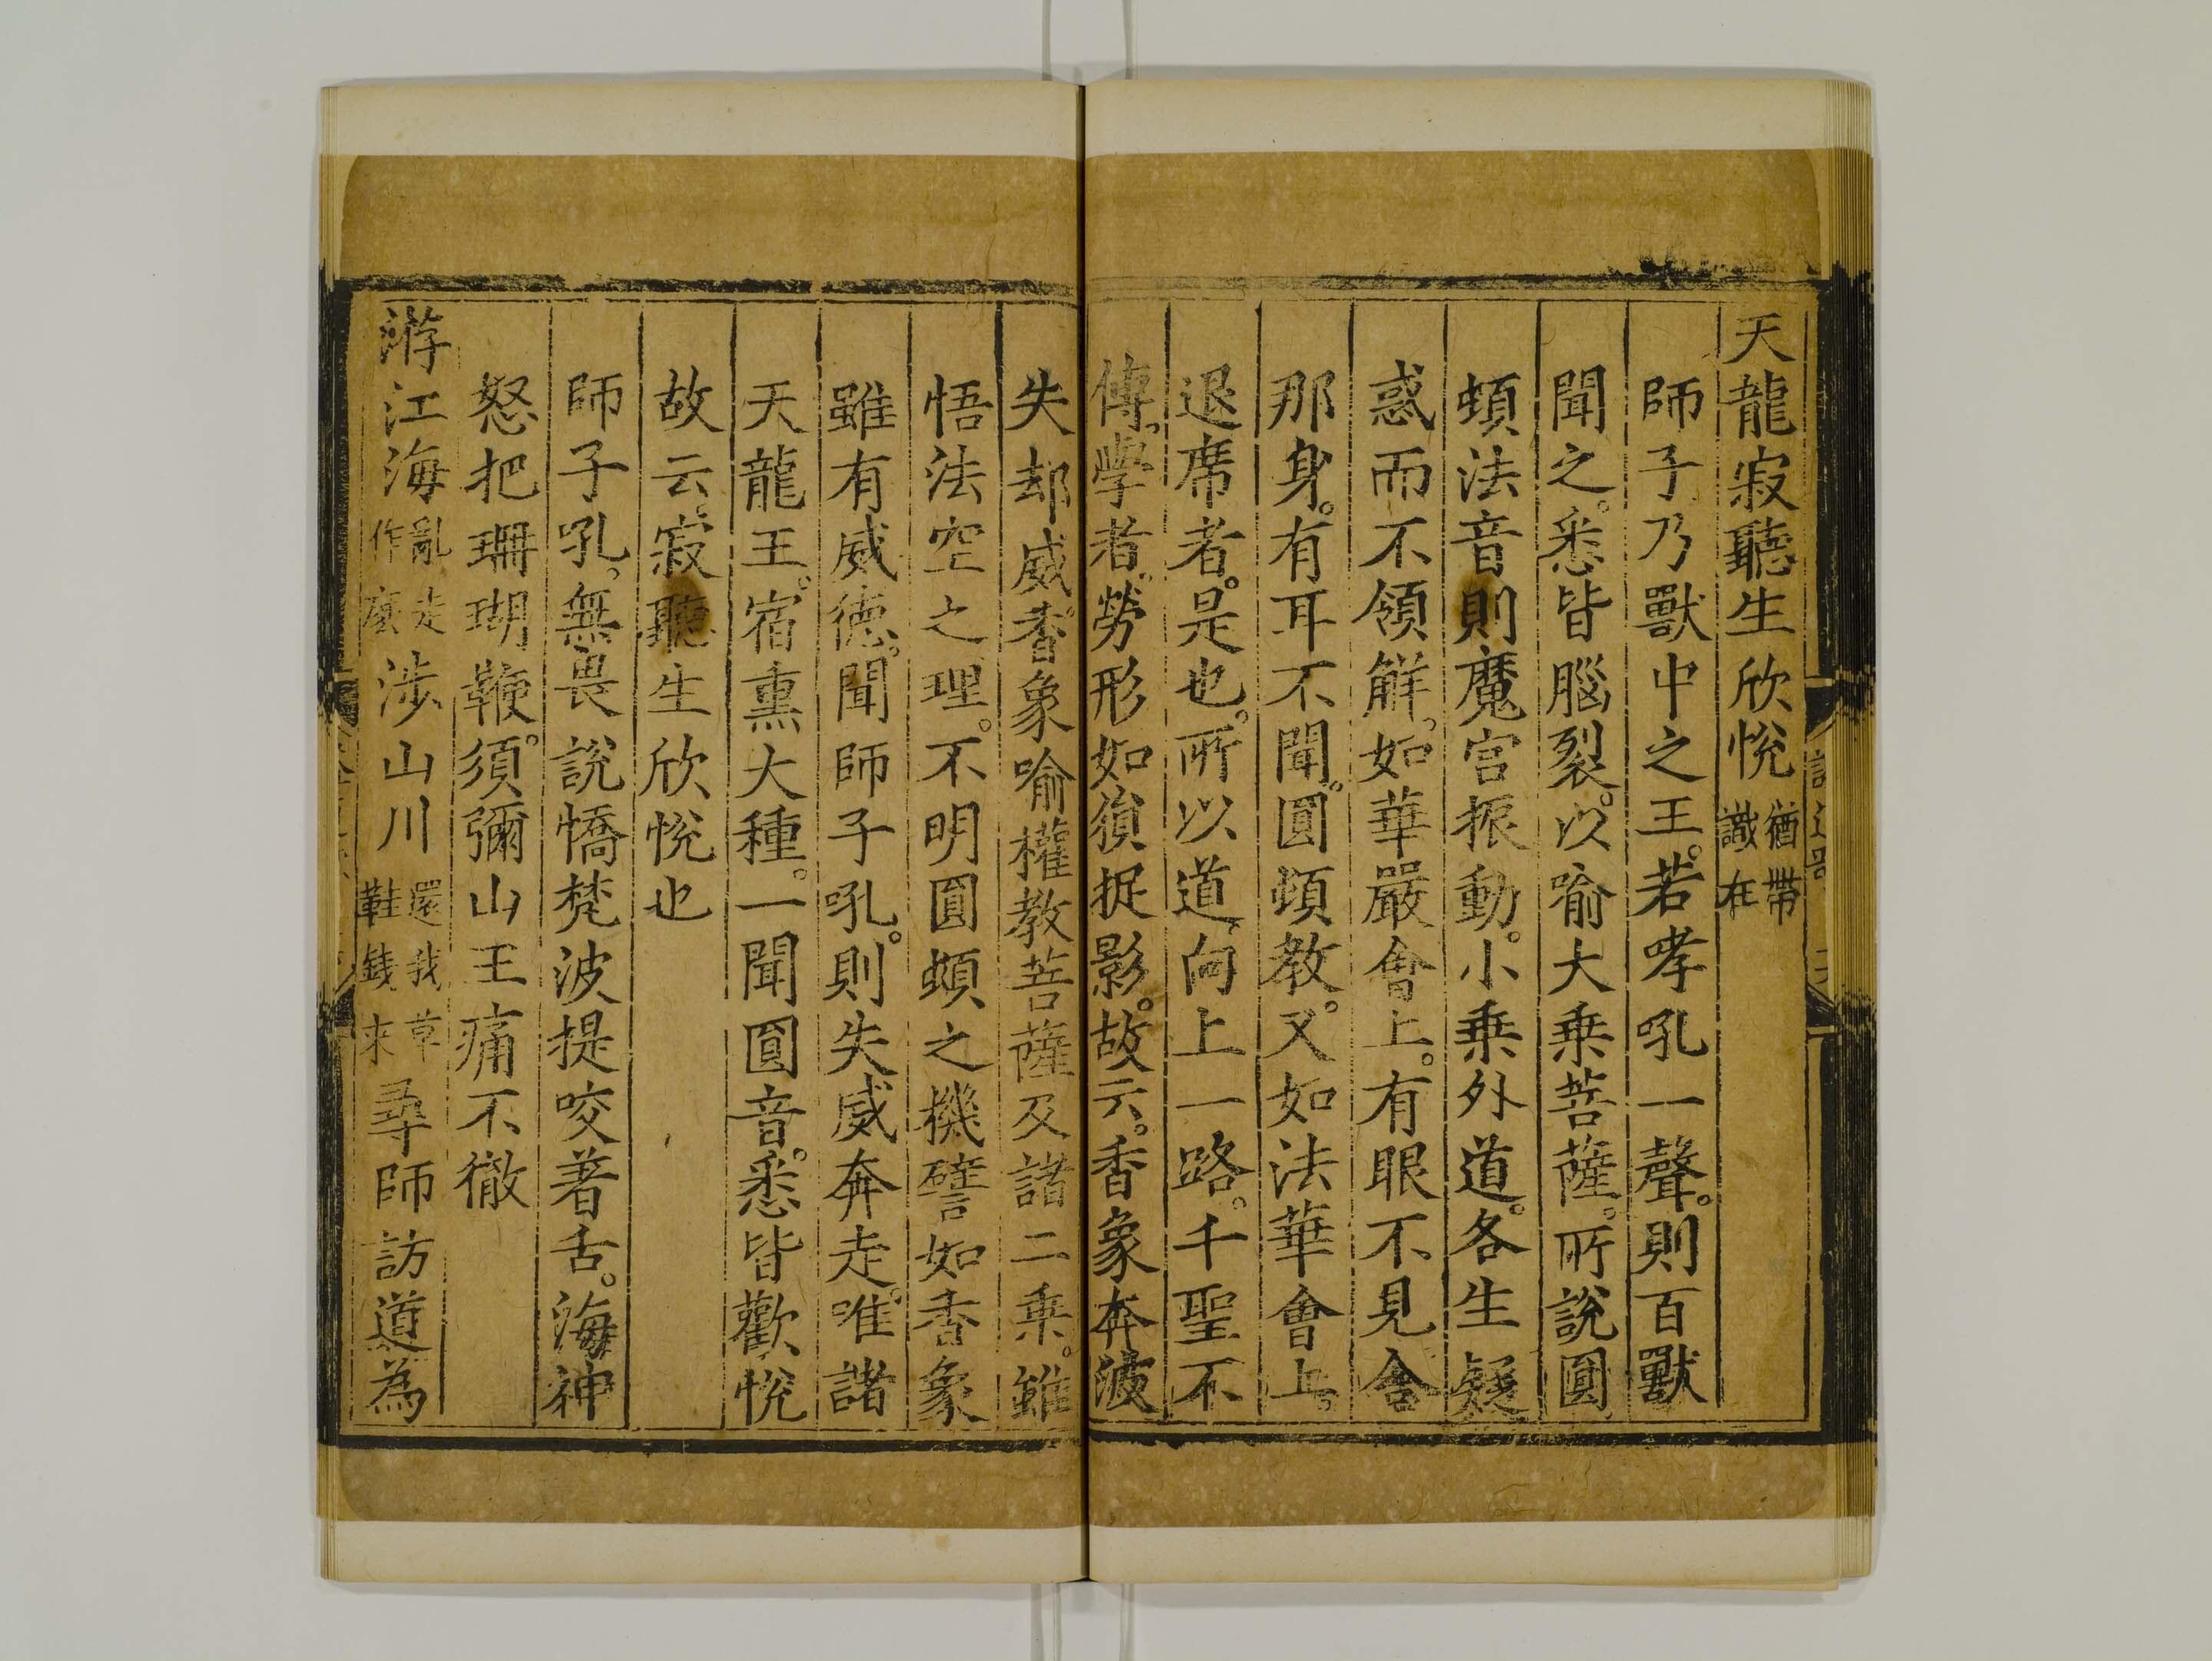 天龍寂聽生欣悅猶帶識在
師子乃獸中之王。若哮吼一聲。則百獸
聞之。悉皆腦裂。以喻大乗菩薩。所說圓
頓法音則魔宫振動。小乗外道。各生疑
惑而不領解。如華嚴會上。有眼不見舍
那身。有耳不聞圓頓教。又如法華會上。
退席者。是也。所以道。向上一路。千聖不
傳。學者。勞形如猨捉影。故云。香象奔波
失却威。香象喻權教菩薩及諸二乗。雖
悟法空之理。不明圓頓之機譬如香象
雖有威德。聞師子吼。則失威奔走。唯諸
天龍王。宿熏大種。一聞圓音。悉皆歡悅
故云。寂聽生欣悅也
師子吼。無畏說憍梵波提咬著舌。海神
怒把珊瑚鞭。須彌山王痛不徹
游江海亂走作麽涉山川還我草鞋錢来尋師訪道為